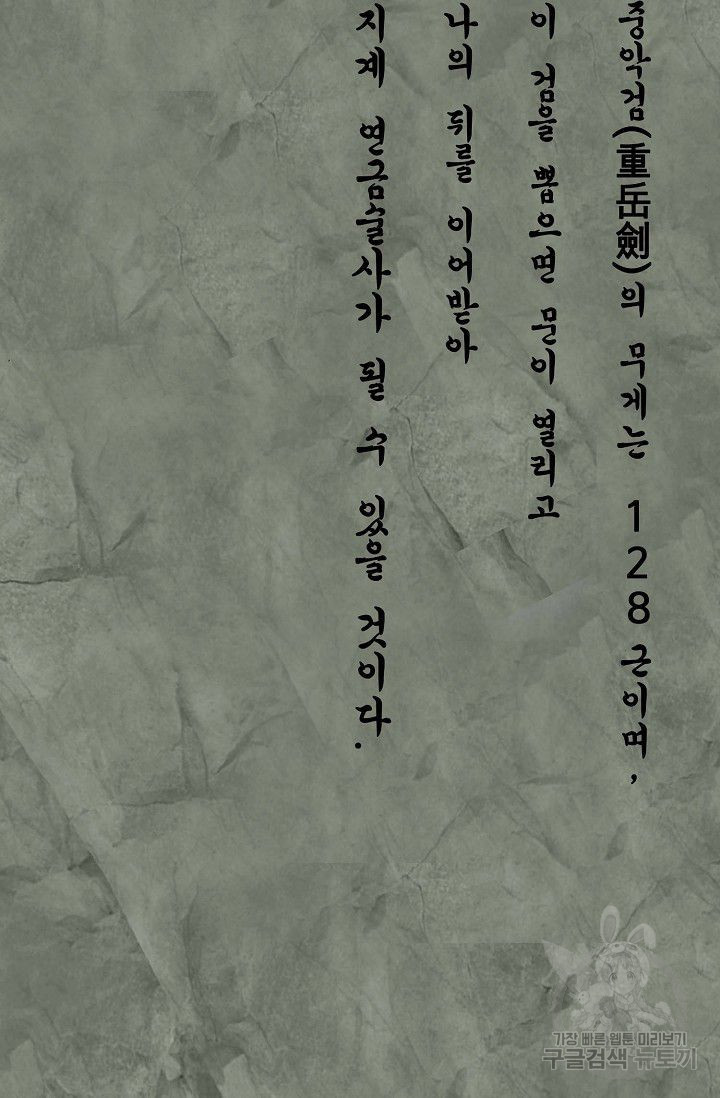 중악검(重岳劍)의 무게는 128근이며,
이 검을 뽑으면 문이 열리고
나의 뒤를 이어받아
지계 연금술사가 될 수 있을 것이다.
가장 빠른 웹툰 미리보기
구글검색 뉴토끼